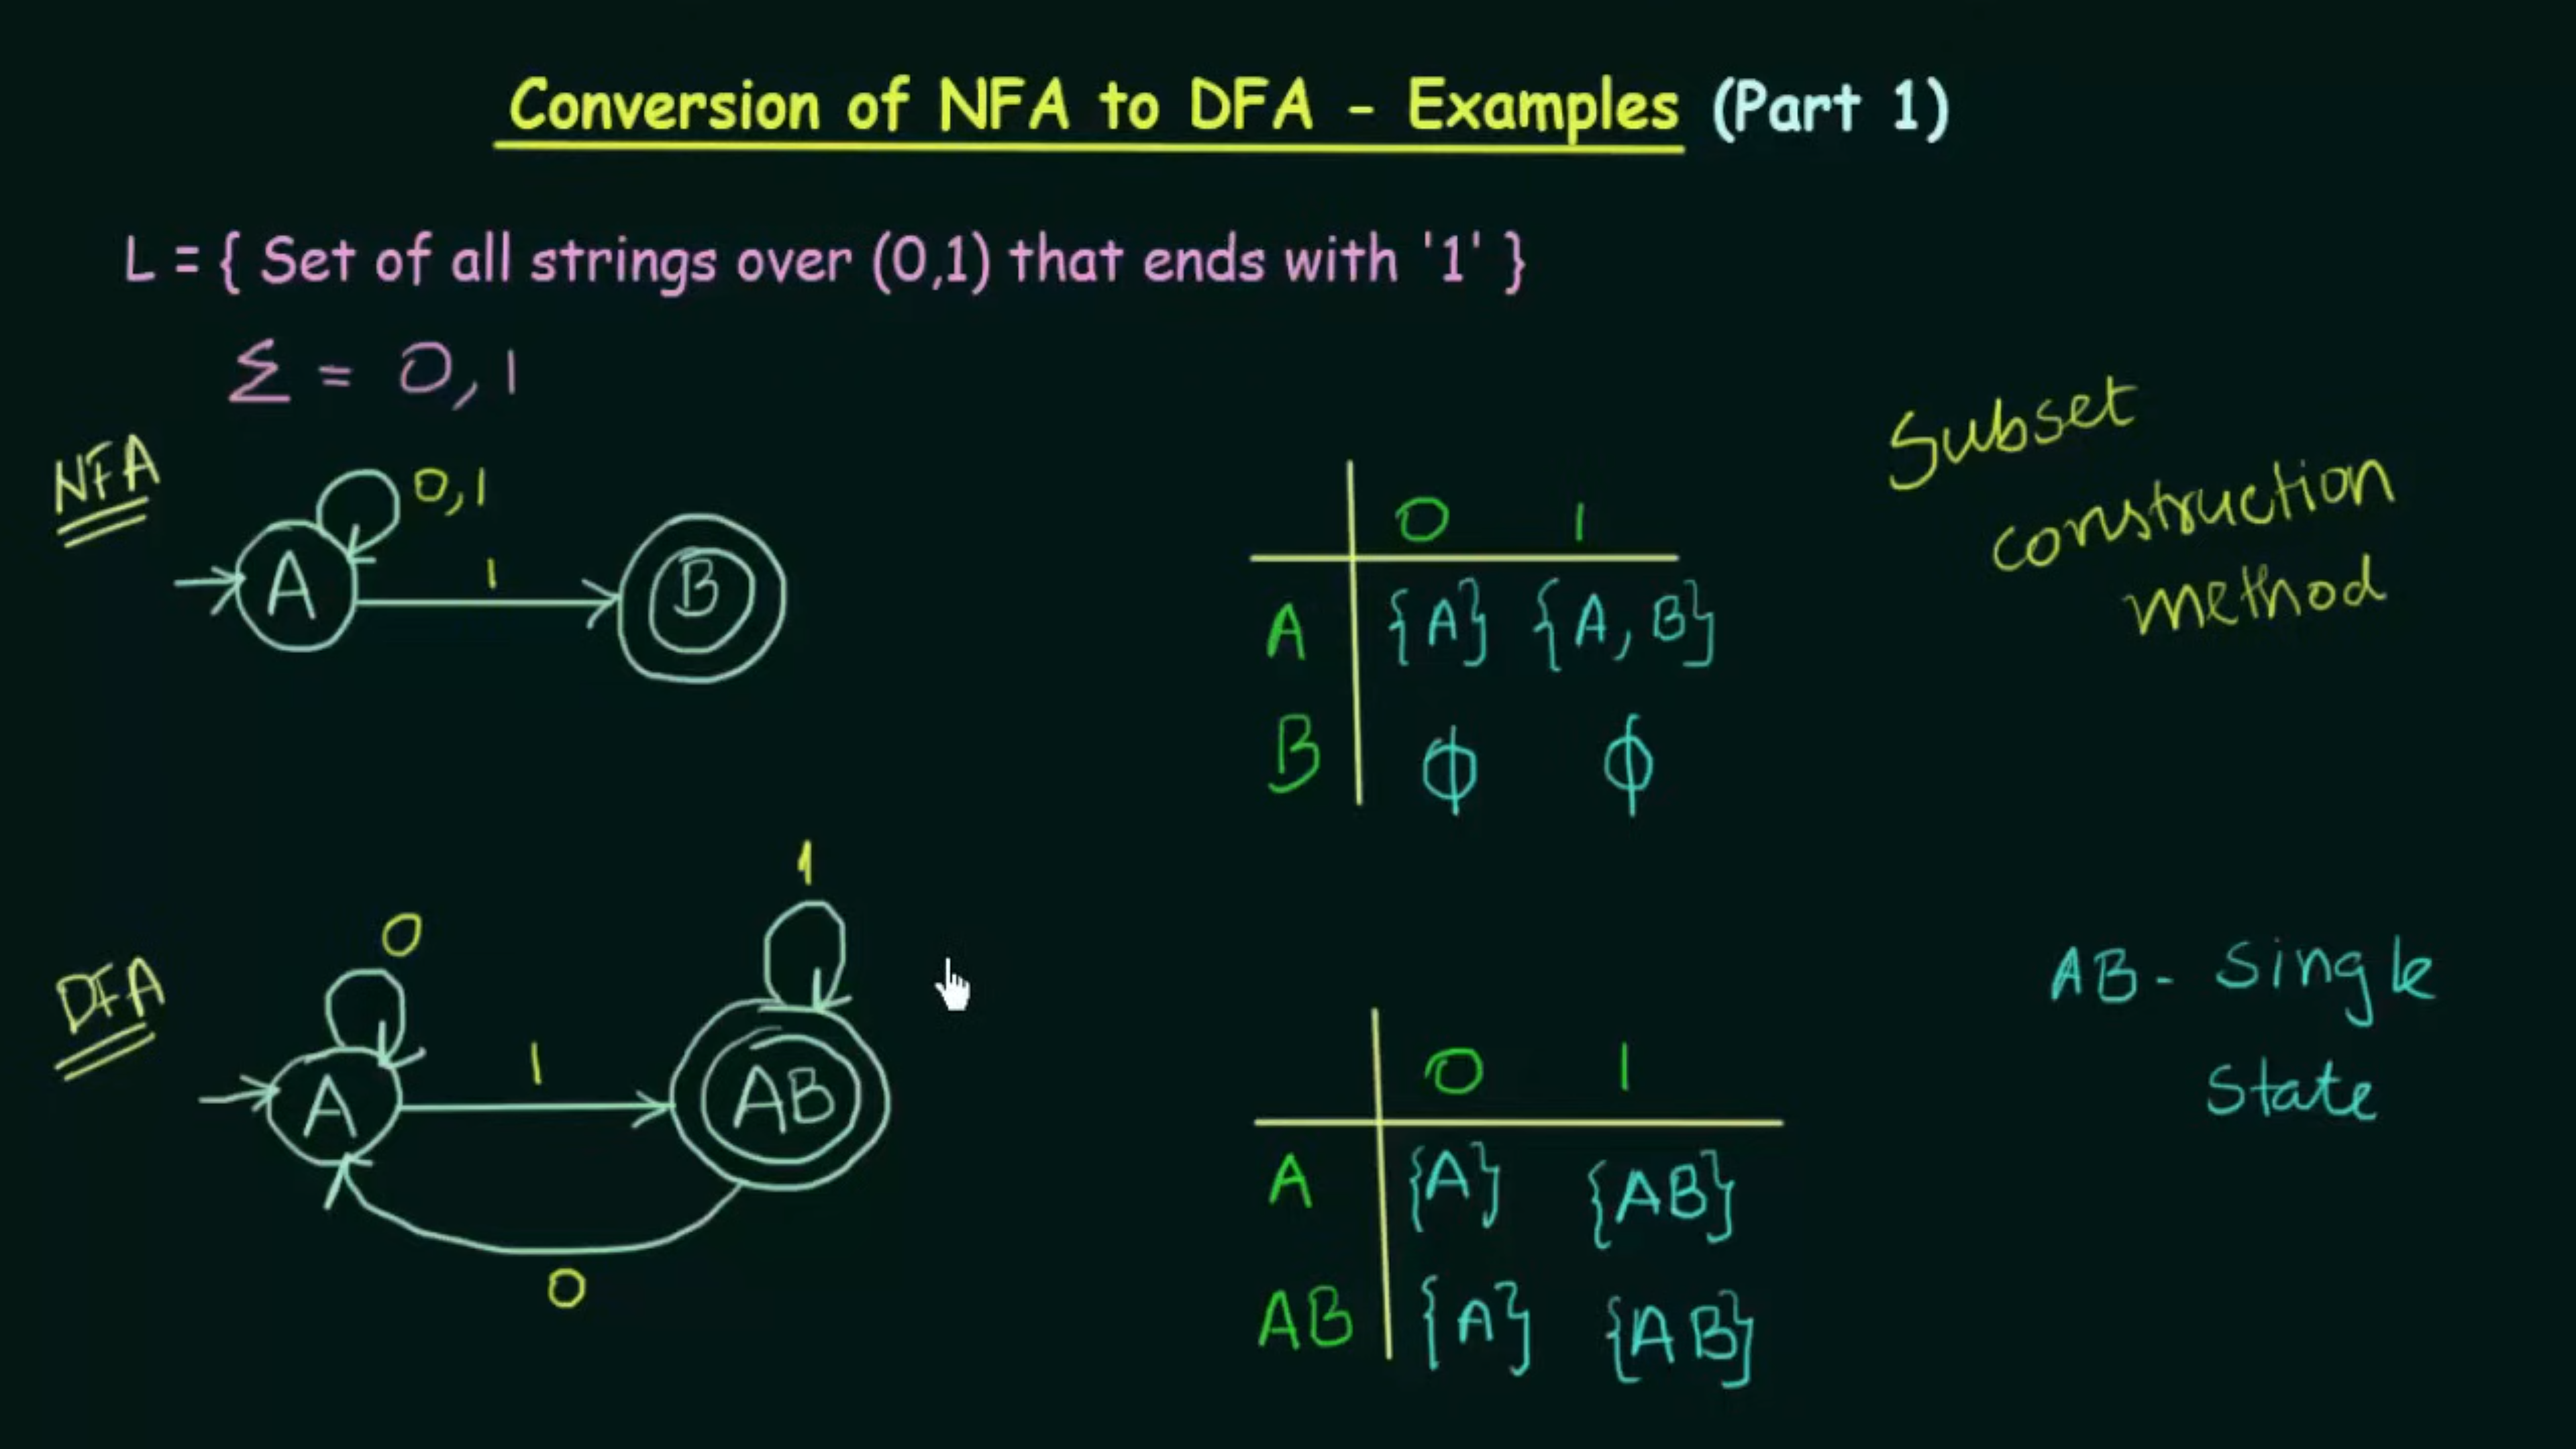 Conversion of NFA to DFA - Examples (Part 1)
L = { Set of all strings over (0,1) that ends with '1' }
Σ = 0, 1
NFA
0,1
A
1
B
0 1
A {A} {A, B}
B ϕ ϕ
Subset
construction
method
DFA
0
1
A
1
AB
0
0 1
A {A} {AB}
AB {A} {AB}
AB - Single
State